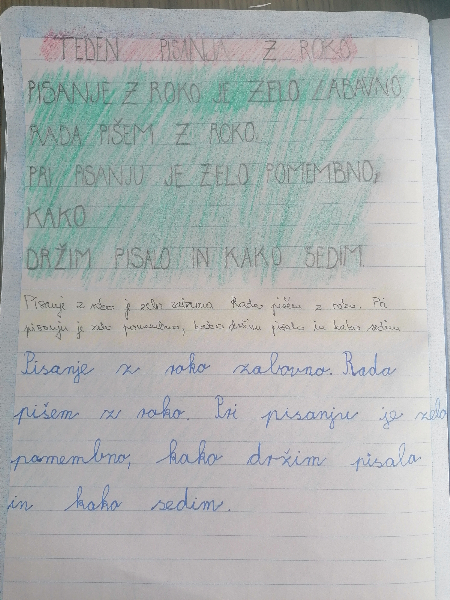 TEDEN PISANJA Z ROKO
PISANJE Z ROKO JE ZELO ZABAVNO
RADA PIŠEM Z ROKO.
PRI PISANJU JE ZELO POMEMBNO,
KAKO
DRŽIM PISALO IN KAKO SEDIM
Pisanje z roko je zelo zabavno Rada pišem z roko. Pri
pisanju je zelo pomembno, kako držim pisalo in kako sedim
Pisanje z roko zabavno. Rada
pišem z roko. Pri pisanju je zelo
pomembno, kako držim pisala
in kako sedim.